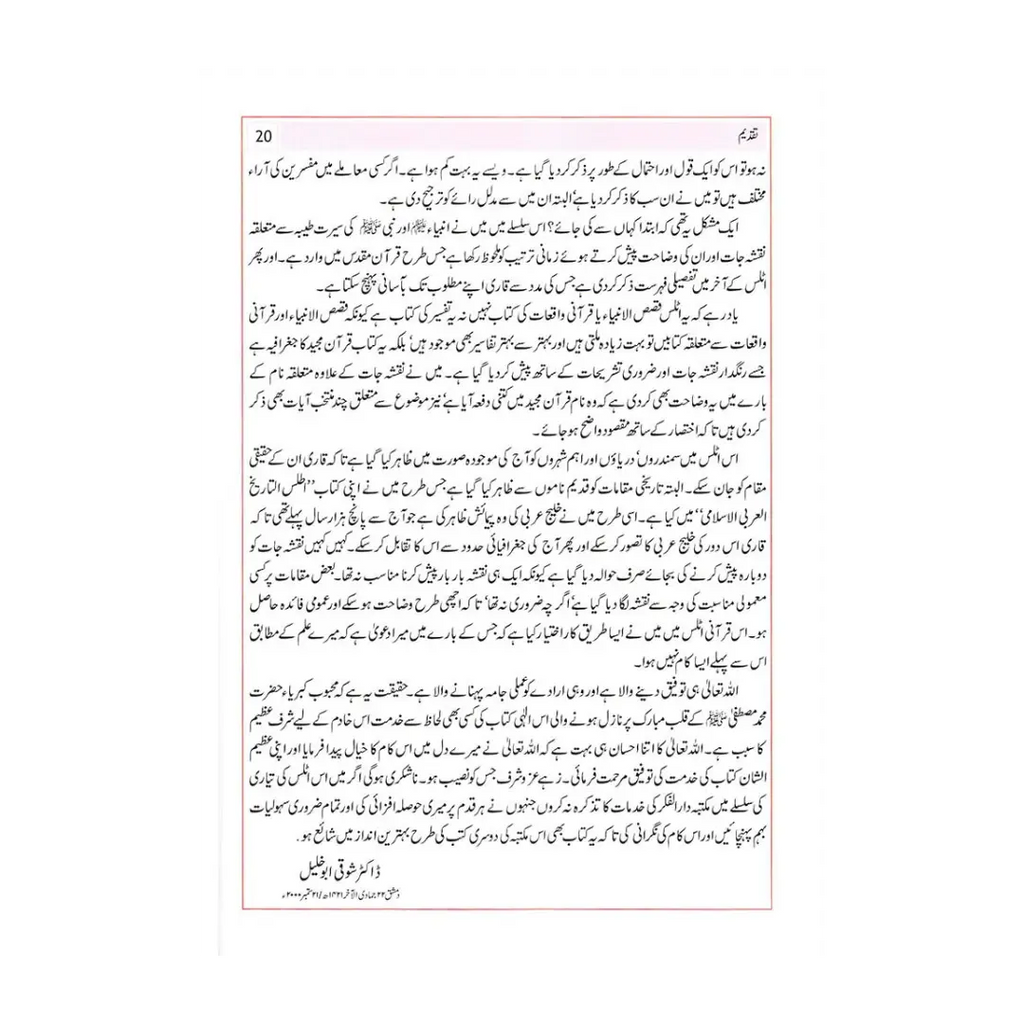 تقدیم 20
نہ ہو تو اس کو ایک قول اور احتمال کے طور پر ذکر کر دیا گیا ہے۔ ویسے یہ بہت کم ہوا ہے۔ اگر کسی معاملے میں مفسرین کی آراء
مختلف ہیں تو میں نے ان سب کا ذکر کر دیا ہے‘ البتہ ان میں سے مدلل رائے کو ترجیح دی ہے۔
ایک مشکل یہ تھی کہ ابتدا کہاں سے کی جائے؟ اس سلسلے میں میں نے انبیاء اور نبی ﷺ کی سیرت طیبہ سے متعلقہ
نقشہ جات اور ان کی وضاحت پیش کرتے ہوئے زمانی ترتیب کو ملحوظ رکھا ہے جس طرح قرآن مقدس میں وارد ہے۔ اور پھر
اٹلس کے آخر میں تفصیلی فہرست ذکر کر دی ہے جس کی مدد سے قاری اپنے مطلوب تک بآسانی پہنچ سکتا ہے۔
یاد رہے کہ یہ اٹلس قصص الانبیاء یا قرآنی واقعات کی کتاب نہیں نہ یہ تفسیر کی کتاب ہے کیونکہ قصص الانبیاء اور قرآنی
واقعات سے متعلقہ کتابیں تو بہت زیادہ ملتی ہیں اور بہتر سے بہتر تفاسیر بھی موجود ہیں‘ بلکہ یہ کتاب قرآن مجید کا جغرافیہ ہے
جسے رنگدار نقشہ جات اور ضروری تشریحات کے ساتھ پیش کر دیا گیا ہے۔ میں نے نقشہ جات کے علاوہ متعلقہ نام کے
بارے میں یہ وضاحت بھی کر دی ہے کہ وہ نام قرآن مجید میں کتنی دفعہ آیا ہے‘ نیز موضوع سے متعلق چند منتخب آیات بھی ذکر
کر دی ہیں تا کہ اختصار کے ساتھ مقصود واضح ہو جائے۔
اس اٹلس میں سمندروں‘ دریاؤں اور اہم شہروں کو آج کی موجودہ صورت میں ظاہر کیا گیا ہے تا کہ قاری ان کے حقیقی
مقام کو جان سکے۔ البتہ تاریخی مقامات کو قدیم ناموں سے ظاہر کیا گیا ہے جس طرح میں نے اپنی کتاب ’’اطلس التاریخ
العربی الاسلامی‘‘ میں کیا ہے۔ اسی طرح میں نے خلیج عربی کی وہ پیمائش ظاہر کی ہے جو آج سے پانچ ہزار سال پہلے تھی تا کہ
قاری اس دور کی خلیج عربی کا تصور کر سکے اور پھر آج کی جغرافیائی حدود سے اس کا تقابل کر سکے۔ کہیں کہیں نقشہ جات کو
دوبارہ پیش کرنے کی بجائے صرف حوالہ دیا گیا ہے کیونکہ ایک ہی نقشہ بار بار پیش کرنا مناسب نہ تھا۔ بعض مقامات پر کسی
معمولی مناسبت کی وجہ سے نقشہ لگا دیا گیا ہے‘ اگر چہ ضروری نہ تھا‘ تا کہ اچھی طرح وضاحت ہو سکے اور عمومی فائدہ حاصل
ہو۔ اس قرآنی اٹلس میں میں نے ایسا طریق کار اختیار کیا ہے کہ جس کے بارے میں میرا دعویٰ ہے کہ میرے علم کے مطابق
اس سے پہلے ایسا کام نہیں ہوا۔
اللہ تعالیٰ ہی توفیق دینے والا ہے اور وہی ارادے کو عملی جامہ پہنانے والا ہے۔ حقیقت یہ ہے کہ محبوب کبریاء حضرت
محمد مصطفیٰ ﷺ کے قلب مبارک پر نازل ہونے والی اس الٰہی کتاب کی کسی بھی لحاظ سے خدمت اس خادم کے لیے شرف عظیم
کا سبب ہے۔ اللہ تعالیٰ کا اتنا احسان ہی بہت ہے کہ اللہ تعالیٰ نے میرے دل میں اس کام کا خیال پیدا فرمایا اور اپنی عظیم
الشان کتاب کی خدمت کی توفیق مرحمت فرمائی۔ زہے عز و شرف جس کو نصیب ہو۔ ناشکری ہوگی اگر میں اس اٹلس کی تیاری
کی سلسلے میں مکتبہ دار الفکر کی خدمات کا تذکرہ نہ کروں جنہوں نے ہر قدم پر میری حوصلہ افزائی کی اور تمام ضروری سہولیات
بہم پہنچائیں اور اس کام کی نگرانی کی تا کہ یہ کتاب بھی اس مکتبہ کی دوسری کتب کی طرح بہترین انداز میں شائع ہو۔
ڈاکٹر شوقی ابو خلیل
دمشق ۲۲ جمادی الآخر ۱۴۲۱ھ/۲۱ ستمبر ۲۰۰۰ء